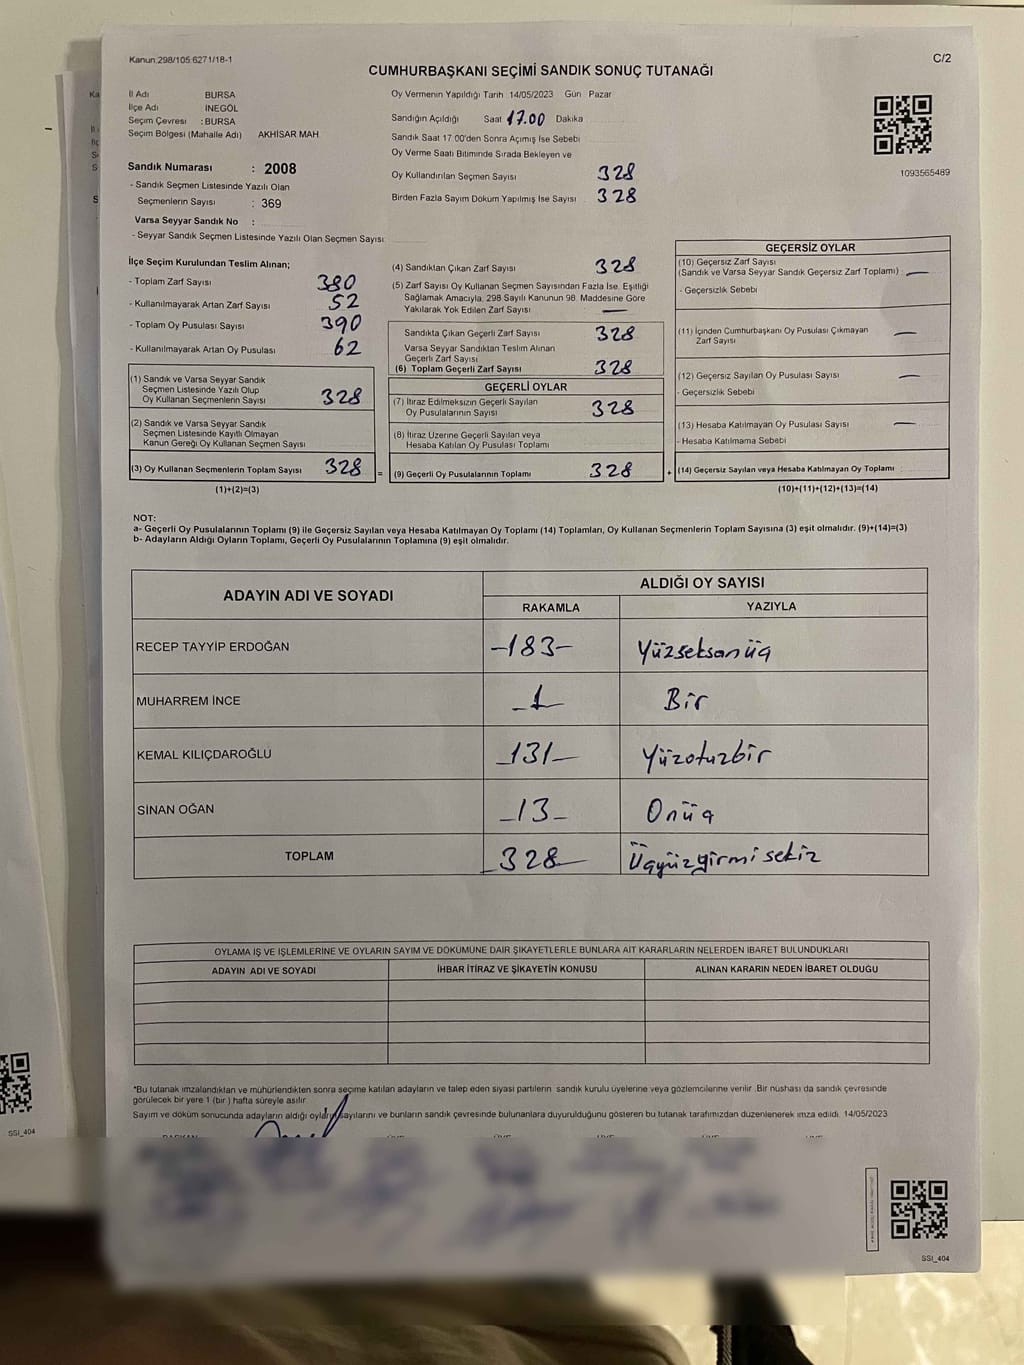 Kanun:298/105:6271/18-1
C/2
CUMHURBAŞKANI SEÇİMİ SANDIK SONUÇ TUTANAĞI
İl Adı BURSA
İlçe Adı İNEGÖL
Seçim Çevresi : BURSA
Seçim Bölgesi (Mahalle Adı) AKHİSAR MAH.
Oy Vermenin Yapıldığı Tarih 14/05/2023 Gün Pazar
Sandığın Açıldığı Saat 17.00 Dakika
Sandık Saat 17.00'den Sonra Açımış İse Sebebi
Oy Verme Saati Bitiminde Sırada Bekleyen ve
Oy Kullandırılan Seçmen Sayısı 328
Birden Fazla Sayım Döküm Yapılmış İse Sayısı 328
1093565489
Sandık Numarası : 2008
- Sandık Seçmen Listesinde Yazılı Olan
Seçmenlerin Sayısı : 369
Varsa Seyyar Sandık No :
- Seyyar Sandık Seçmen Listesinde Yazılı Olan Seçmen Sayısı
İlçe Seçim Kurulundan Teslim Alınan;
- Toplam Zarf Sayısı 380
- Kullanılmayarak Artan Zarf Sayısı 52
- Toplam Oy Pusulası Sayısı 390
- Kullanılmayarak Artan Oy Pusulası 62
(1) Sandık ve Varsa Seyyar Sandık
Seçmen Listesinde Yazılı Olup
Oy Kullanan Seçmenlerin Sayısı 328
(2) Sandık ve Varsa Seyyar Sandık
Seçmen Listesinde Kayıtlı Olmayan
Kanun Gereği Oy Kullanan Seçmen Sayısı
(3) Oy Kullanan Seçmenlerin Toplam Sayısı 328
(1)+(2)=(3)
(4) Sandıktan Çıkan Zarf Sayısı 328
(5) Zarf Sayısı Oy Kullanan Seçmen Sayısından Fazla İse, Eşitliği
Sağlamak Amacıyla, 298 Sayılı Kanunun 98. Maddesine Göre
Yakılarak Yok Edilen Zarf Sayısı —
Sandıkta Çıkan Geçerli Zarf Sayısı 328
Varsa Seyyar Sandıktan Teslim Alınan
Geçerli Zarf Sayısı
(6) Toplam Geçerli Zarf Sayısı 328
GEÇERLİ OYLAR
(7) İtiraz Edilmeksizin Geçerli Sayılan
Oy Pusulalarının Sayısı 328
(8) İtiraz Üzerine Geçerli Sayılan veya
Hesaba Katılan Oy Pusulası Toplamı
= (9) Geçerli Oy Pusulalarının Toplamı 328
GEÇERSİZ OYLAR
(10) Geçersiz Zarf Sayısı
(Sandık ve Varsa Seyyar Sandık Geçersiz Zarf Toplamı) : —
- Geçersizlik Sebebi
(11) İçinden Cumhurbaşkanı Oy Pusulası Çıkmayan —
Zarf Sayısı
(12) Geçersiz Sayılan Oy Pusulası Sayısı —
- Geçersizlik Sebebi
(13) Hesaba Katılmayan Oy Pusulası Sayısı —
- Hesaba Katılmama Sebebi
+ (14) Geçersiz Sayılan veya Hesaba Katılmayan Oy Toplamı
(10)+(11)+(12)+(13)=(14)
NOT:
a- Geçerli Oy Pusulalarının Toplamı (9) ile Geçersiz Sayılan veya Hesaba Katılmayan Oy Toplamı (14) Toplamları, Oy Kullanan Seçmenlerin Toplam Sayısına (3) eşit olmalıdır. (9)+(14)=(3)
b- Adayların Aldığı Oyların Toplamı, Geçerli Oy Pusulalarının Toplamına (9) eşit olmalıdır.
ADAYIN ADI VE SOYADI
ALDIĞI OY SAYISI
RAKAMLA YAZIYLA
RECEP TAYYİP ERDOĞAN -183- Yüzseksanüç
MUHARREM İNCE -1- Bir
KEMAL KILIÇDAROĞLU -131- Yüzotuzbir
SİNAN OĞAN -13- Onüç
TOPLAM -328- Üçyüzyirmisekiz
OYLAMA İŞ VE İŞLEMLERİNE VE OYLARIN SAYIM VE DÖKÜMÜNE DAİR ŞİKAYETLERLE BUNLARA AİT KARARLARIN NELERDEN İBARET BULUNDUKLARI
ADAYIN ADI VE SOYADI İHBAR İTİRAZ VE ŞİKAYETİN KONUSU ALINAN KARARIN NEDEN İBARET OLDUĞU
*Bu tutanak imzalandıktan ve mühürlendikten sonra seçime katılan adayların ve talep eden siyasi partilerin sandık kurulu üyelerine veya gözlemcilerine verilir. Bir nüshası da sandık çevresinde
görülecek bir yere 1 (bir) hafta süreyle asılır.
Sayım ve döküm sonucunda adayların aldığı oyların sayılarını ve bunların sandık çevresinde bulunanlara duyurulduğunu gösteren bu tutanak tarafımızdan düzenlenerek imza edildi. 14/05/2023
SSI_404
SSI_404